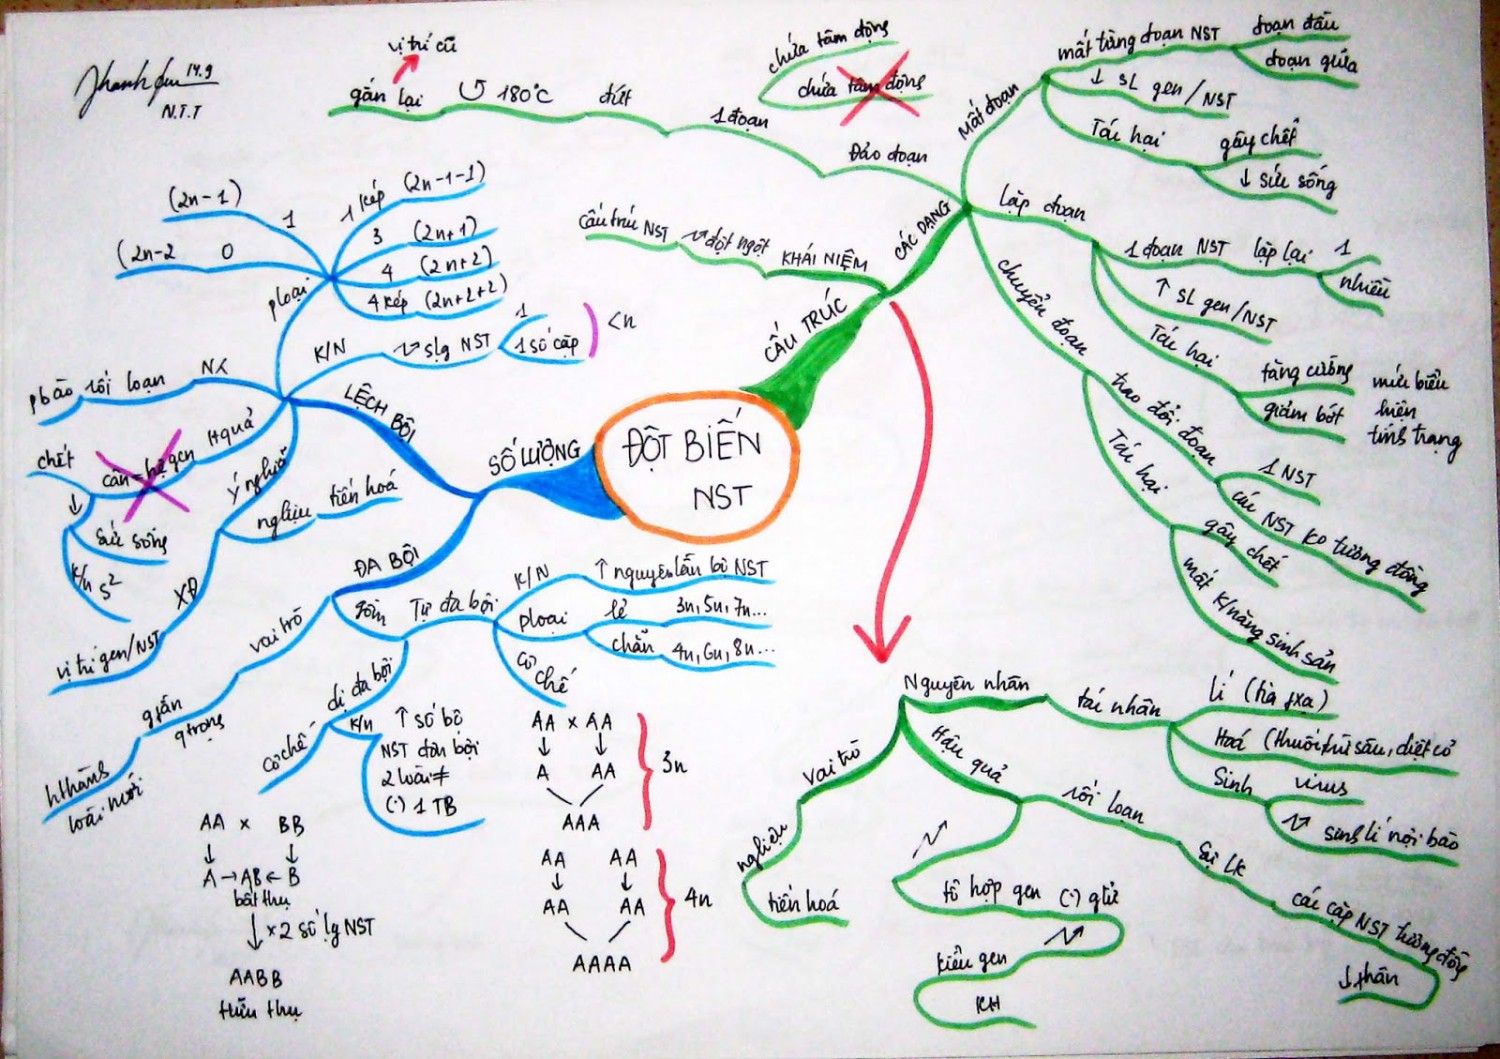 ĐỘT BIẾN
NST
CẤU TRÚC
KHÁI NIỆM
đột ngột
Cấu trúc NST
CÁC DẠNG
Mất đoạn
mất từng đoạn NST
đoạn đầu
đoạn giữa
↓ SL gen/NST
Tác hại
gây chết
↓ sức sống
Lặp đoạn
1 đoạn NST
lặp lại
1
nhiều
↑ SL gen/NST
Tác hại
tăng cường
giảm bớt
mức biểu
hiện
tính trạng
chuyển đoạn
trao đổi đoạn
1 NST
các NST ko tương đồng
Tác hại
gây chết
mất k/năng sinh sản
Đảo đoạn
1 đoạn
chứa tâm động
chứa tâm động
đứt
180°C
gắn lại
vị trí cũ
Nguyên nhân
tác nhân
lí (tia fxạ)
Hoá (thuốc trừ sâu, diệt cỏ
Sinh
virus
sinh lí nội bào
Hậu quả
rối loạn
Sự LK
các cặp NST tương đồng
↓ phân
tổ hợp gen (.) gtử
kiểu gen
KH
Vai trò
nghiệu
tiến hoá
SỐ LƯỢNG
LỆCH BỘI
ploại
1
(2n-1)
0
(2n-2
1 kép
(2n-1-1)
3
(2n+1)
4
(2n+2]
4 kép
(2n+2+2)
K/N
slg NST
1
1 số cặp
<n
NN
pbào rối loạn
Hquả
cân hệ gen
chết
↓
sức sống
k/n s²
Ý nghĩa
nghiệu tiến hoá
XĐ
vị trí gen/NST
ĐA BỘI
vai trò
qtrọng
hthành
loài mới
gồm
Tự đa bội
K/N
↑ nguyên lần bộ NST
ploại
lẻ
3n, 5n, 7n...
chẵn
4n, 6n, 8n...
cơ chế
AA x AA
A AA
AAA
3n
AA AA
AA AA
AAAA
4n
dị đa bội
K/n
↑ số bộ
NST đơn bội
2 loài ≠
(.) 1 TB
Cơ chế
AA x BB
A → AB ← B
bất thụ
x2 số lg NST
AABB
Hữu thụ
14.9
N.T.T